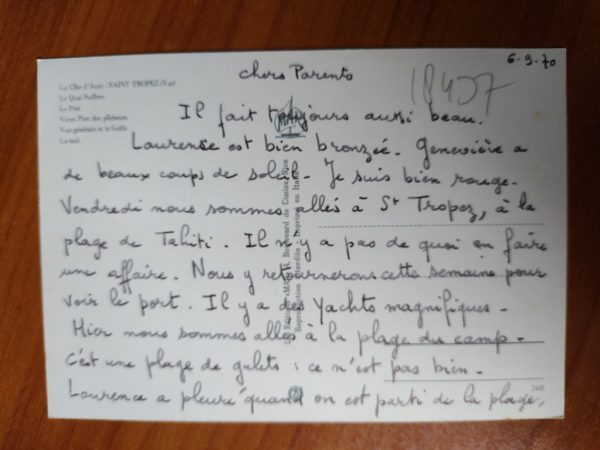 6.9.70
chers Parents
18407
La Côte d'Azur - SAINT TROPEZ (Var)
Le Quai Suffren
Le Port
Vieux Port des pêcheurs
Vue générale et le Golfe
La nuit
Il fait toujours aussi beau.
Laurence est bien bronzée. Geneviève a
de beaux coups de soleil. Je suis bien rouge.
Vendredi nous sommes allés à St Tropez, à la
plage de Tahiti. Il n'y a pas de quoi en faire
une affaire. Nous y retournerons cette semaine pour
voir le port. Il y a des Yachts magnifiques.
Hier nous sommes allés à la plage du camp.
C'est une plage de galets : ce n'est pas bien.
Laurence a pleuré quand on est parti de la plage.
Boulevard de Cimiez, Nice
Reproduction interdite - Imprimé en Italie